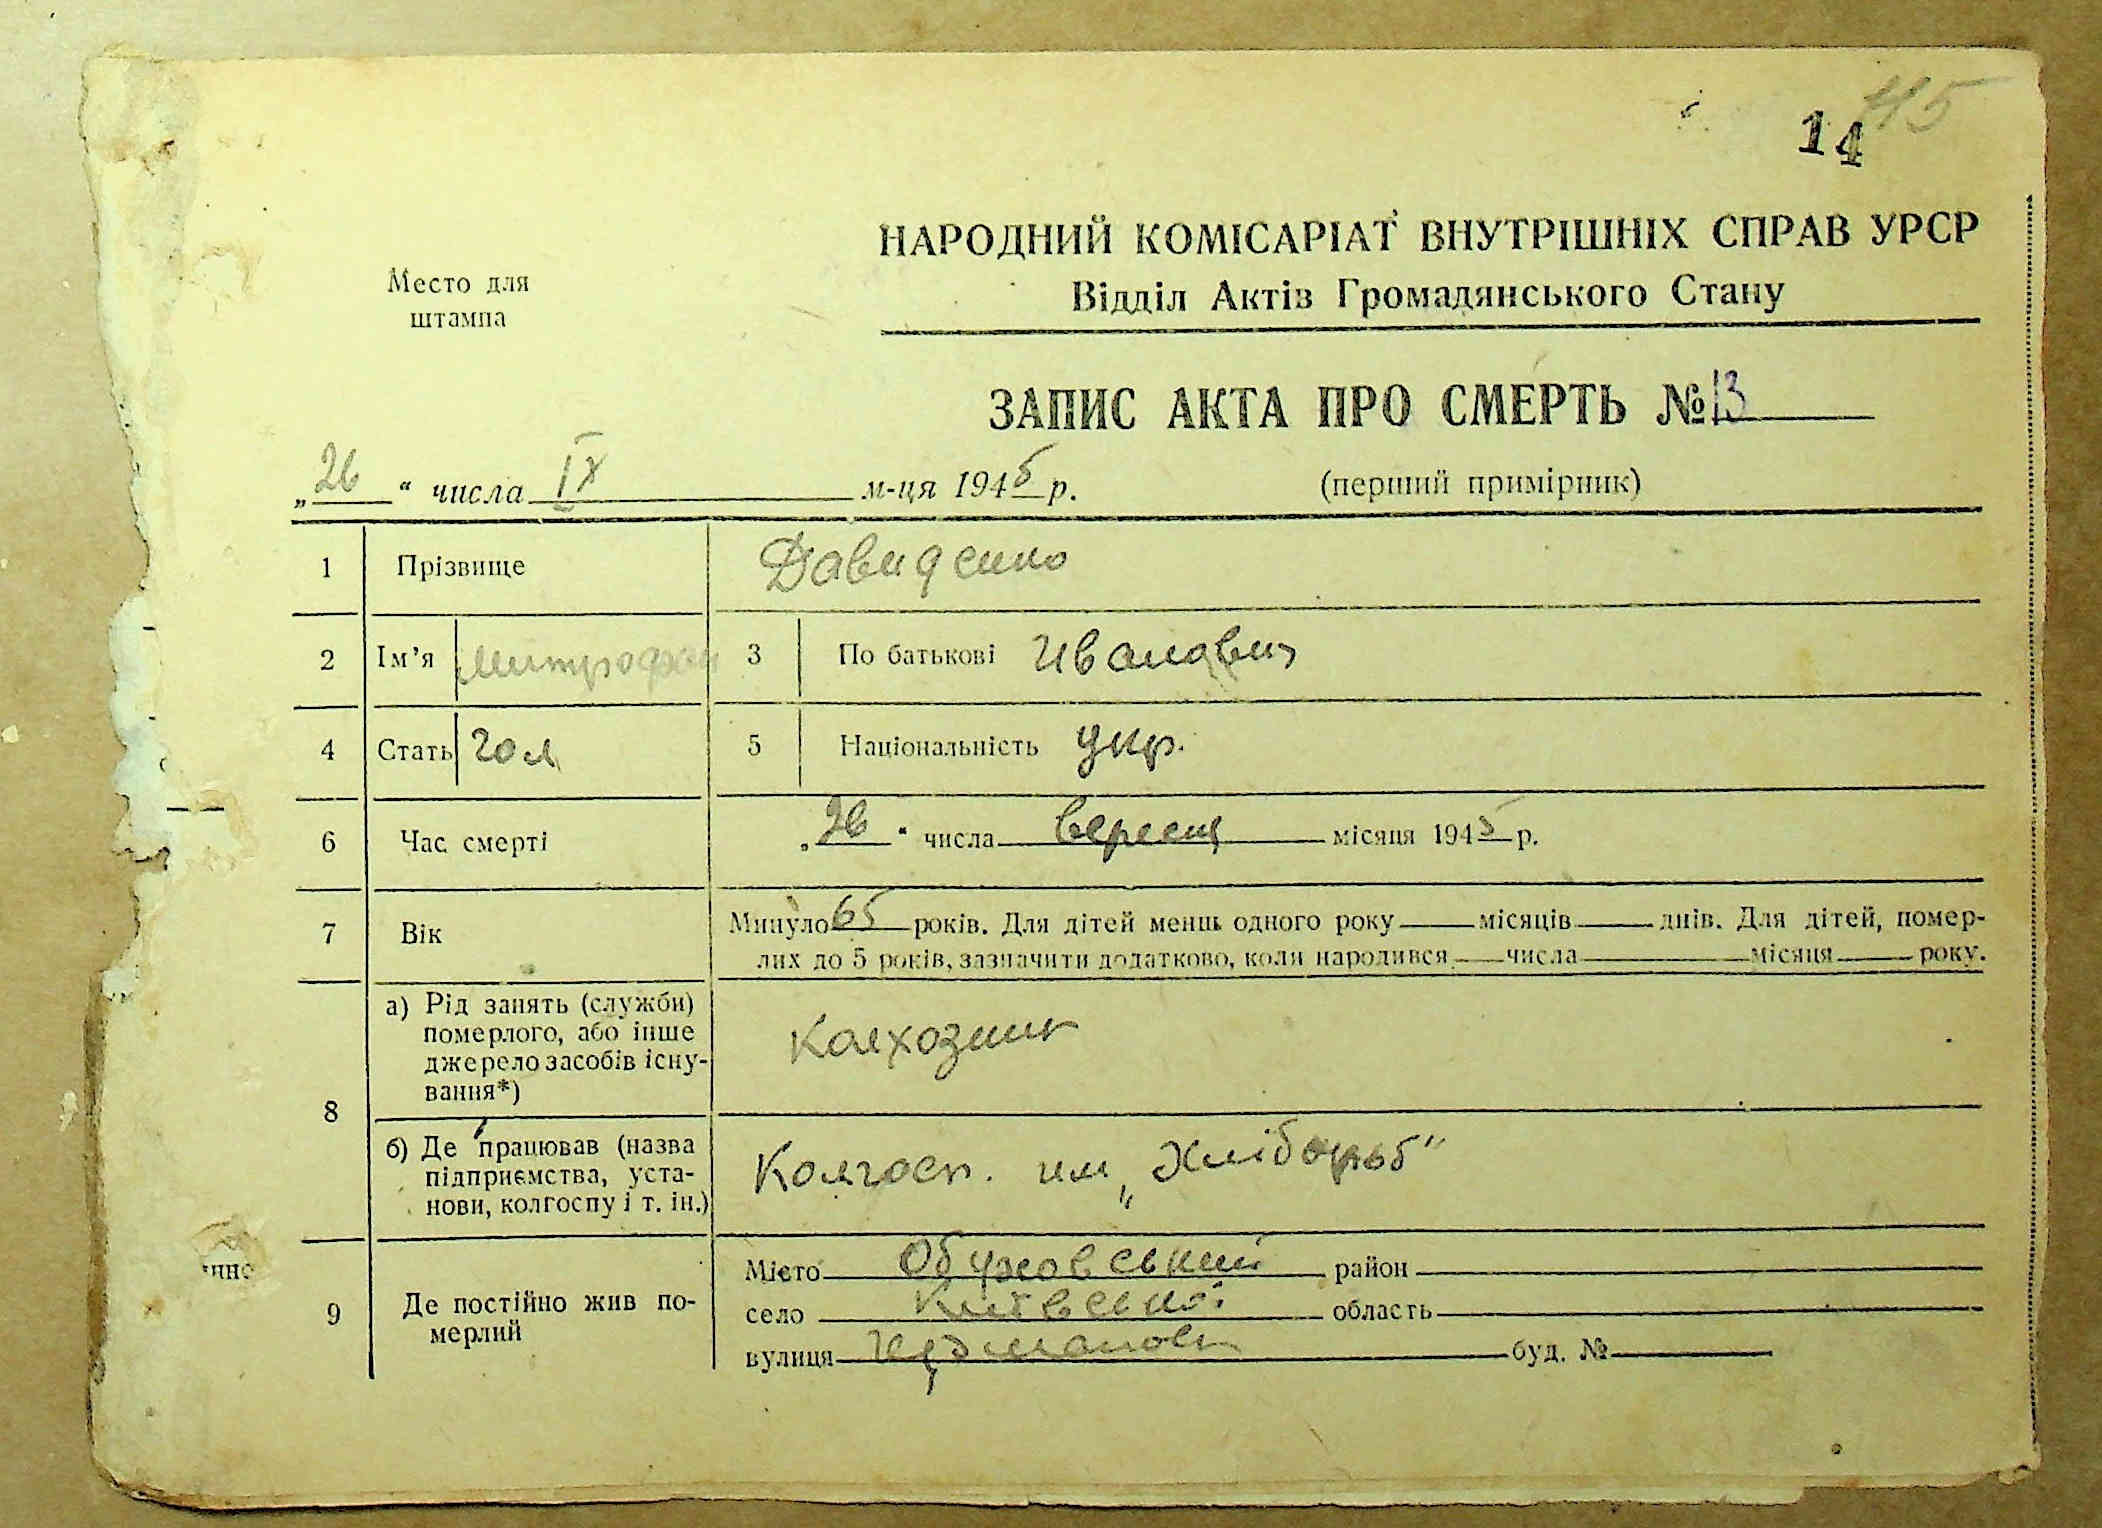 145
14
НАРОДНИЙ КОМІСАРІАТ ВНУТРІШНІХ СПРАВ УРСР
Место для
штампа
Відділ Актів Громадянського Стану
ЗАПИС АКТА ПРО СМЕРТЬ № 13
„26“ числа IX м-ця 1945 р. (перший примірник)
1 Прізвище Давиденко
2 Ім’я Митрофан 3 По батькові Иванович
4 Стать чол 5 Національність укр.
6 Час смерті „26“ числа вересня місяця 1945 р.
7 Вік Минуло 65 років. Для дітей менш одного року місяців днів. Для дітей, помер-
лих до 5 років, зазначити додатково, коли народився числа місяця року.
8 а) Рід занять (служби)
померлого, або інше
джерело засобів існу-
вання*) Колхозник
б) Де працював (назва
підприємства, уста-
нови, колгоспу і т. ін.) Колгосп. им „Хлібороб“
9 Де постійно жив по-
мерлий
Місто Обуховський район
село Київської область
вулиця буд. №